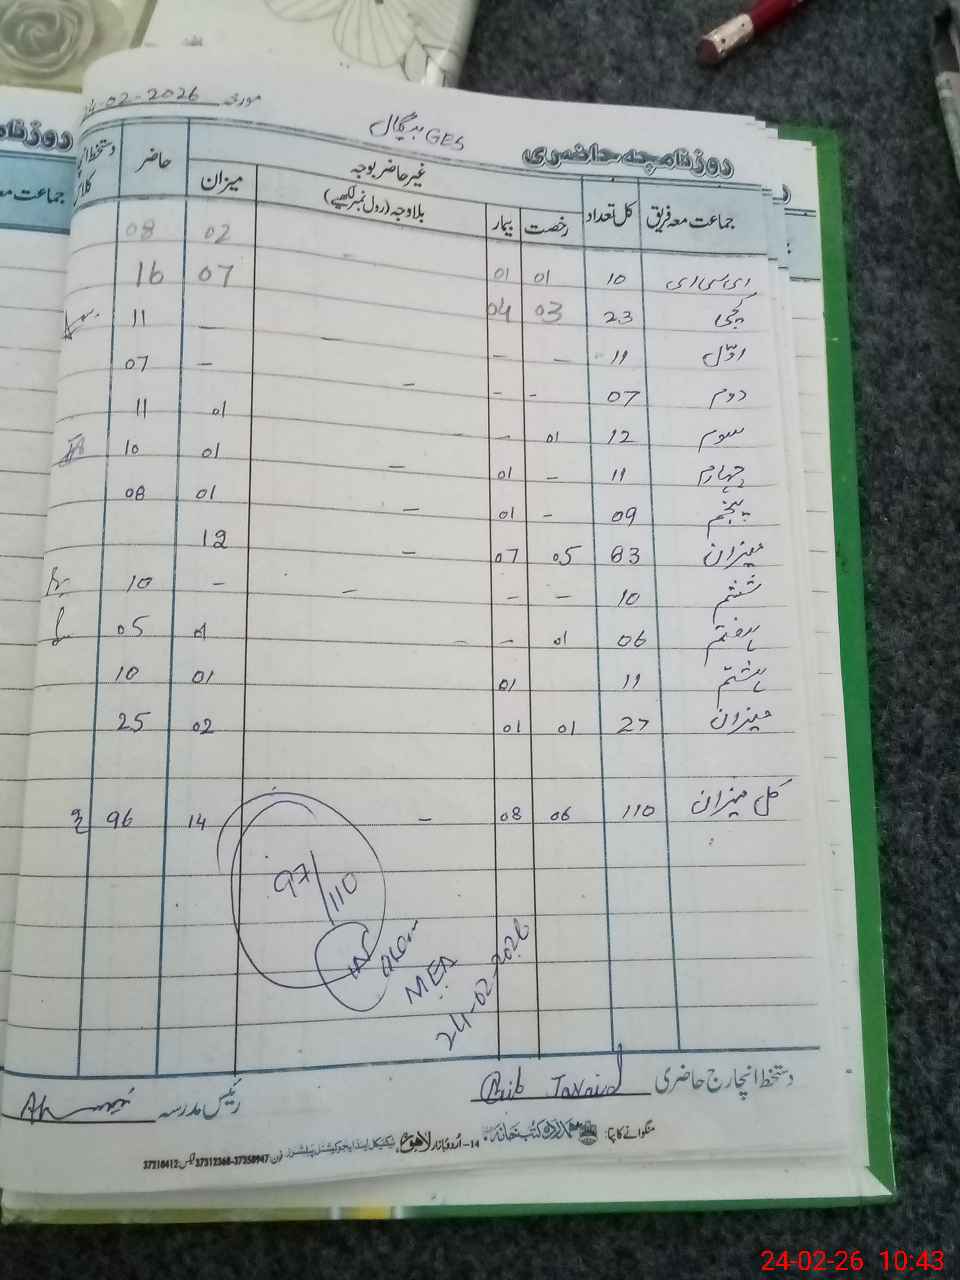 مورخہ 24-02-2026
GES ہریگال
روزنامچہ حاضری
جماعت معہ فریق کل تعداد غیر حاضر بوجہ میزان حاضر دستخط انچارج کلاس
رخصت بیمار بلاوجہ (رول نمبر لکھیے)
ای سی ای 10 01 01 - 02 08
کچی 23 03 04 07 16
اوّل 11 - - - - 11
دوم 07 - - - - 07
سوم 12 01 - - 01 11
چہارم 11 - 01 - 01 10
پنجم 09 - 01 - 01 08
میزان 83 05 07 - 12
ششم 10 - - - - 10
ہفتم 06 01 - - 01 05
ہشتم 11 01 01 10
میزان 27 01 01 02 25
کل میزان 110 06 08 - 14 96
97/110
MEA
24-02-2026
دستخط انچارج حاضری Javaid
رئیس مدرسہ
منگوانے کا پتا: ہمدرد کتب خانہ
14-اُردو بازار لاہور
فون: 37312368-37350947 فیکس: 37210412
جماعت معہ
24-02-26 10:43